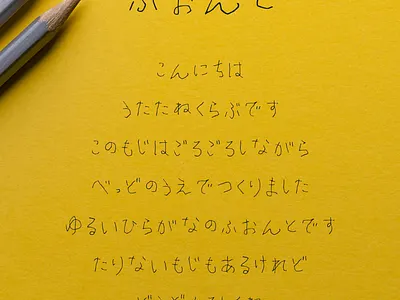 ふぉんと
こんにちは
うたたねくらぶです
このもじはごろごろしながら
べっどのうえでつくりました
ゆるいひらがなのふぉんとです
たりないもじもあるけれど